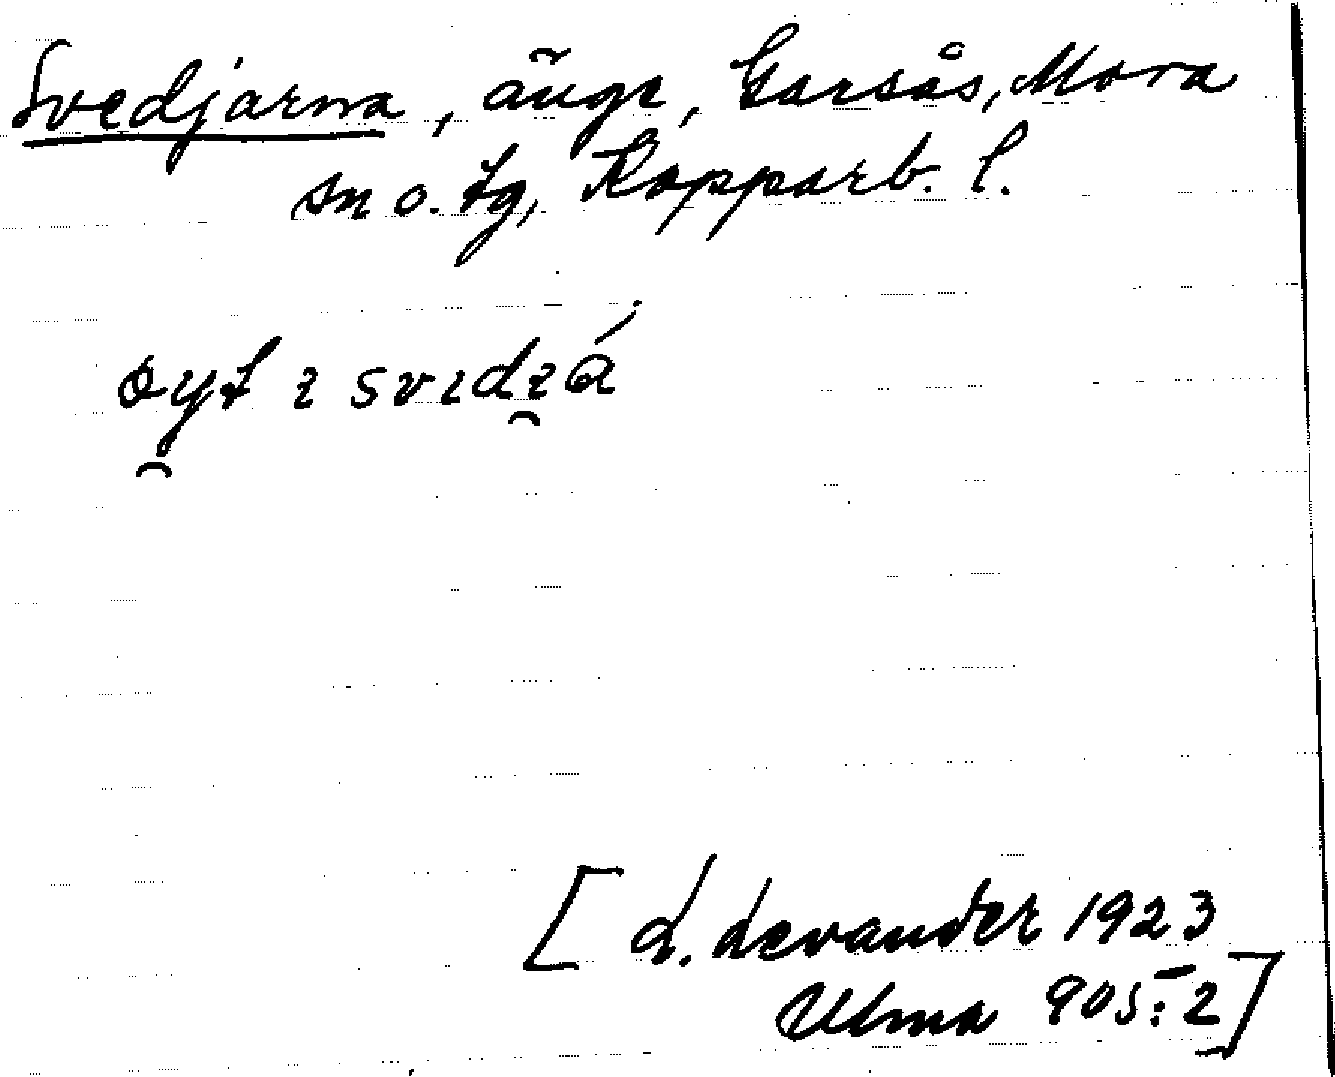 Svedjarna, änge, Garsås, Mora
sn o. tg, Kopparb. l.
[L. Levander 1923
Ulma 905:2]